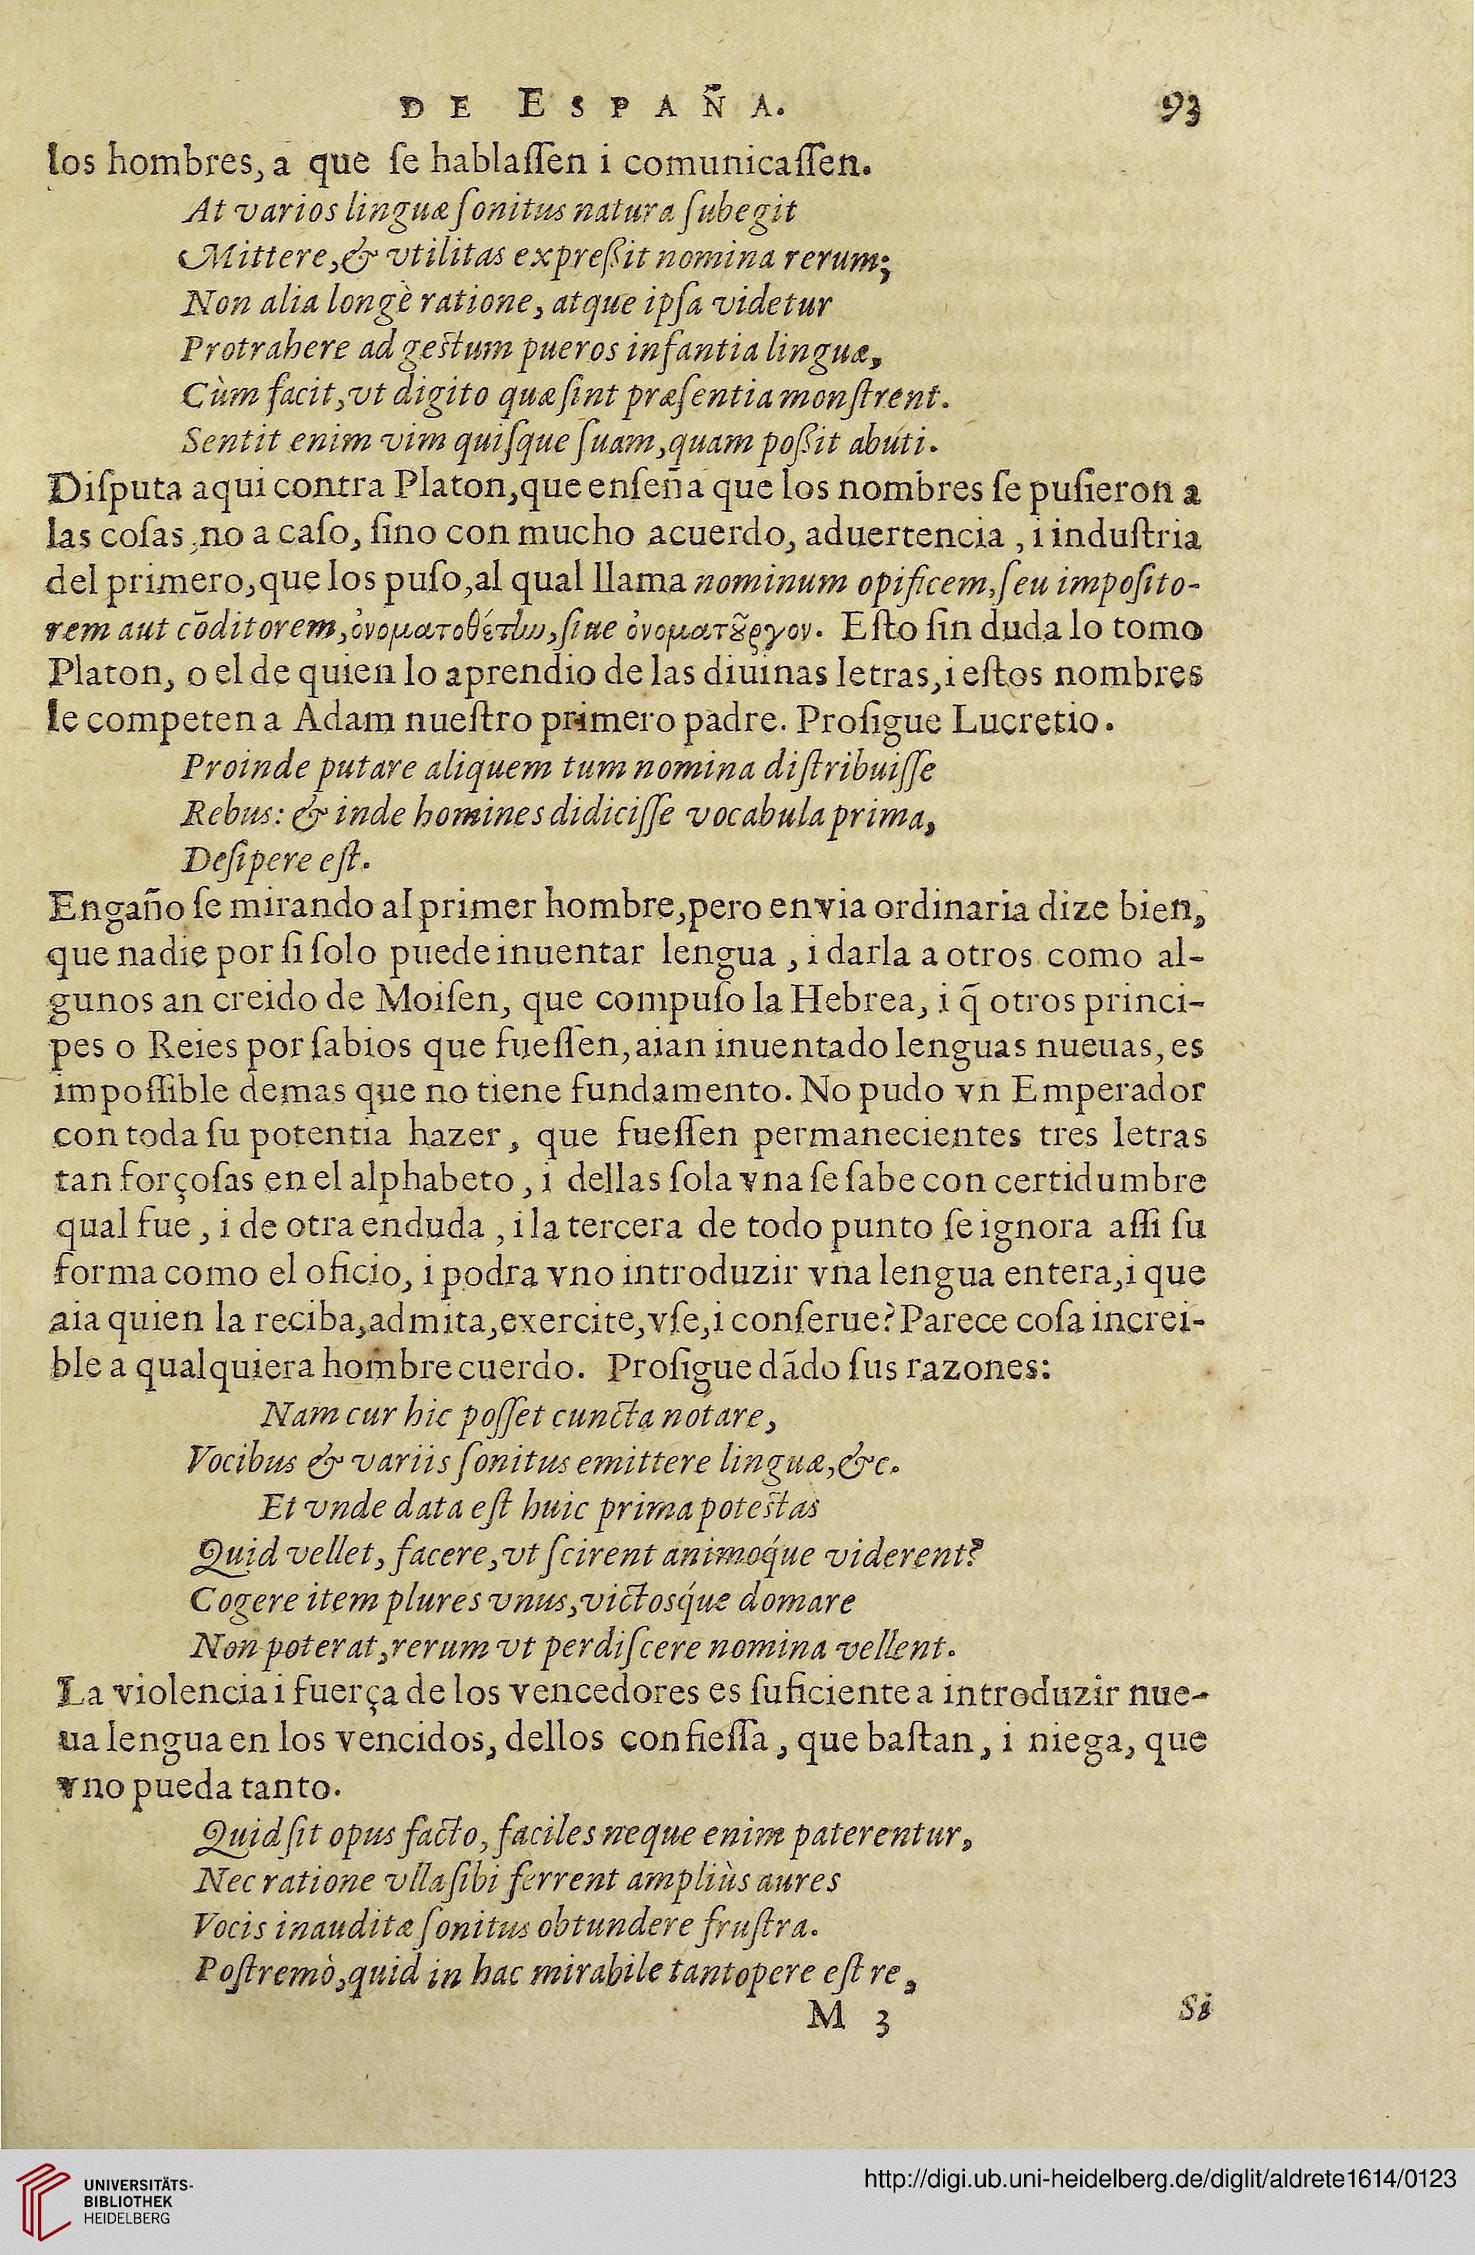 DE ESPAÑA. 93
los hombres, a que ſe hablaſſen i comunicaſſen.
At varios linguæ ſonitus natura ſubegit
Mittere, & vtilitas expreßit nomina rerum;
Non alia longè ratione, atque ipſa videtur
Protrahere ad gestum pueros infantia linguæ,
Cùm facit, vt digito quæ ſint præſentia monſtrent.
Sentit enim vim quiſque ſuam, quam poßit abuti.
Diſputa aqui contra Platon, que enſeña que los nombres ſe puſieron a
las coſas, no a caſo, ſino con mucho acuerdo, aduertencia, i induſtria
del primero, que los puſo, al qual llama nominum opificem, ſeu impoſito-
rem aut cõditorem, ὀνοματοθέτην, ſiue ὀνοματȣ͂ργον. Eſto ſin duda lo tomo
Platon, o el de quien lo aprendio de las diuinas letras, i eſtos nombres
le competen a Adam nueſtro primero padre. Proſigue Lucretio.
Proinde putare aliquem tum nomina diſtribuiſſe
Rebus: & inde homines didiciſſe vocabula prima,
Deſipere eſt.
Engaño ſe mirando al primer hombre, pero en via ordinaria dize bien,
que nadie por ſi ſolo puede inuentar lengua, i darla a otros como al-
gunos an creido de Moiſen, que compuſo la Hebrea, i q̃ otros princi-
pes o Reies por ſabios que fueſſen, aian inuentado lenguas nueuas, es
impoſſible demas que no tiene fundamento. No pudo vn Emperador
con toda ſu potentia hazer, que fueſſen permanecientes tres letras
tan forçoſas en el alphabeto, i dellas ſola vna ſe ſabe con certidumbre
qual fue, i de otra enduda, i la tercera de todo punto ſe ignora aſſi ſu
forma como el oficio, i podra vno introduzir vna lengua entera, i que
aia quien la reciba, admita, exercite, vſe, i conſerue? Parece coſa increi-
ble a qualquiera hombre cuerdo. Proſigue dãdo ſus razones:
Nam cur hic poſſet cuncta notare,
Vocibus & variis ſonitus emittere linguæ, &c.
Et vnde data eſt huic prima potestas
Quid vellet, facere, vt ſcirent animoq́ue viderent?
Cogere item plures vnus, victosq́ue domare
Non poterat, rerum vt perdiſcere nomina vellent.
La violencia i fuerça de los vencedores es ſuficiente a introduzir nue-
ua lengua en los vencidos, dellos confieſſa, que baſtan, i niega, que
vno pueda tanto.
Quid ſit opus facto, faciles neque enim paterentur,
Nec ratione vlla ſibi ferrent ampliùs aures
Vocis inauditæ ſonitus obtundere fruſtra.
Poſtremò, quid in hac mirabile tantopere eſt re,
M 3 Si
UNIVERSITÄTS-
BIBLIOTHEK
HEIDELBERG
http://digi.ub.uni-heidelberg.de/diglit/aldrete1614/0123